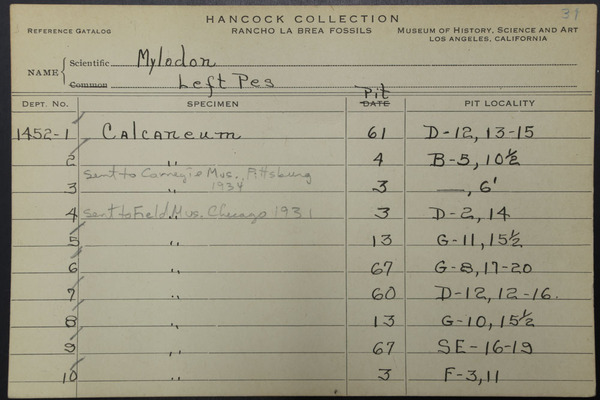 31
HANCOCK COLLECTION
REFERENCE CATALOG RANCHO LA BREA FOSSILS MUSEUM OF HISTORY, SCIENCE AND ART
LOS ANGELES, CALIFORNIA
NAME { Scientific Mylodon
Common Left Pes
Pit
DEPT. NO. SPECIMEN DATE PIT LOCALITY
1452-1 Calcaneum 61 D-12, 13-15
2 " 4 B-5, 10½
sent to Carnegie Mus. Pittsburg
3 " 1934 3 —, 6'
4 sent to Field Mus. Chicago 1931 " 3 D-2, 14
5 " 13 G-11, 15½
6 " 67 G-8, 17-20
7 " 60 D-12, 12-16.
8 " 13 G-10, 15½
9 " 67 SE-16-19
10 " 3 F-3, 11